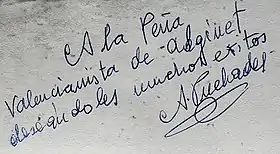 A la Peña
Valencianista de Algínet
deseándoles muchos exitos
A. Puchades